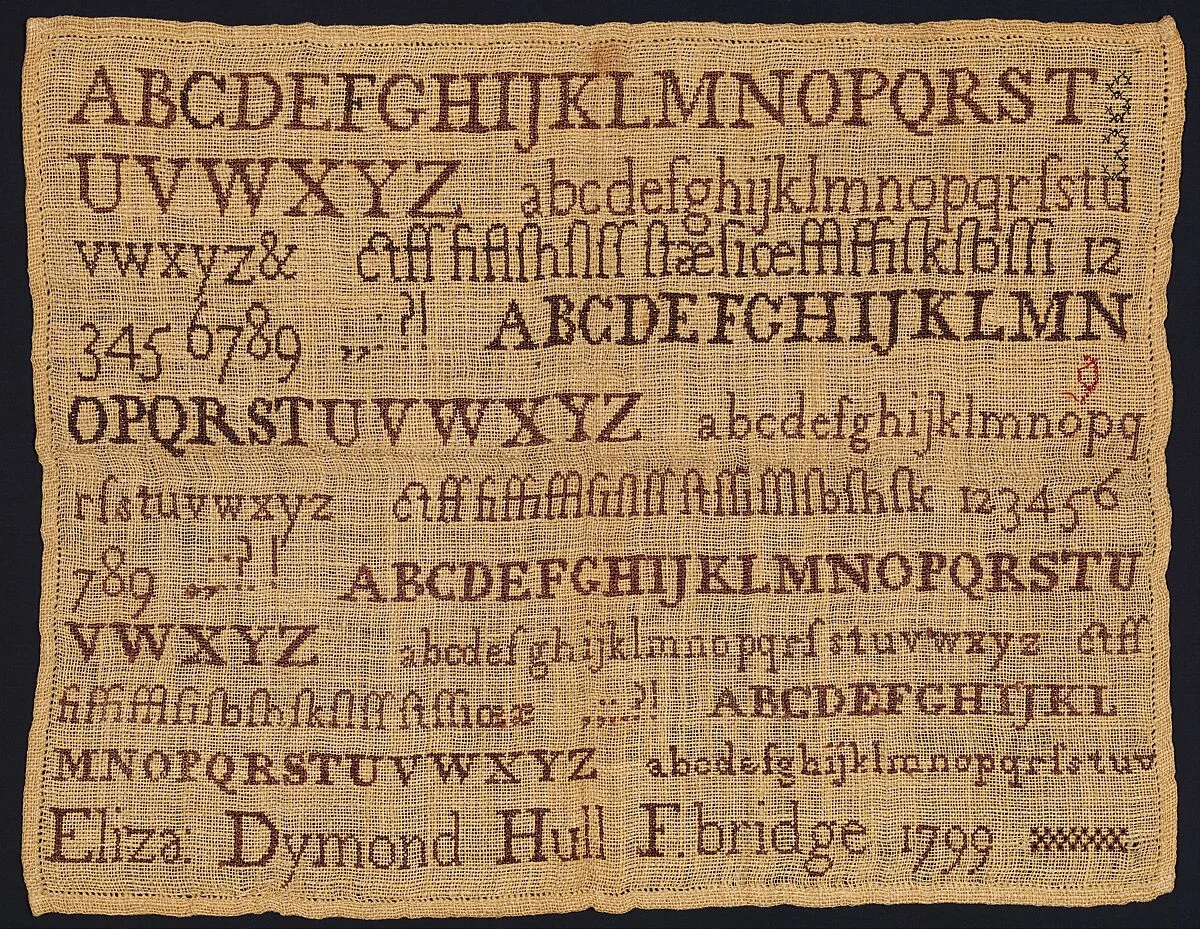 ABCDEFGHIJKLMNOPQRST
UVWXYZ abcdefghijklmnopqrſstu
vwxyz& ctff fiflſhſlſſ ſtæſiœfflffiſkſbſſi 12
3456789 ,;.:?! ABCDEFGHIJKLMN
OPQRSTUVWXYZ abcdefghijklmnopq
rſstuvwxyz ctfffiffifflſiſlſſſtſſiſſlſbſhſk 123456
789 ,;.:?! ABCDEFGHIJKLMNOPQRSTU
VWXYZ abcdefghijklmnopqrſstuvwxyz ctff
fiffifflſiſbſhſkſlſſſtſſiœæ ,;:.?! ABCDEFGHIJKL
MNOPQRSTUVWXYZ abcdefghijklmnopqrſstuv
Eliza: Dymond Hull F.bridge 1799